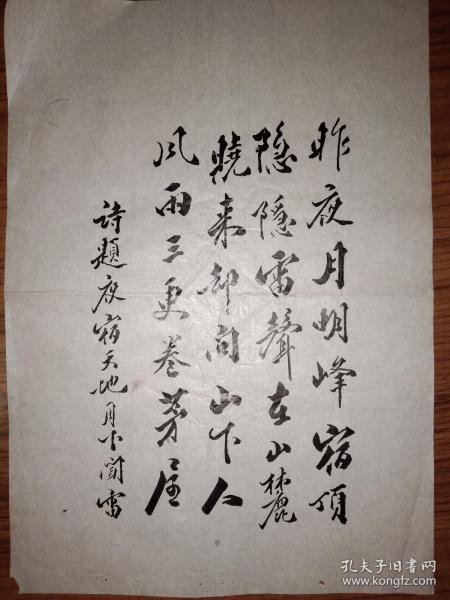 昨夜月明峰宿顶
隐隐雷聲在山麓
曉来却问山下人
风雨三更卷茅屋
詩题夜宿天地月下聞雷
孔夫子旧书网
www.kongfz.com